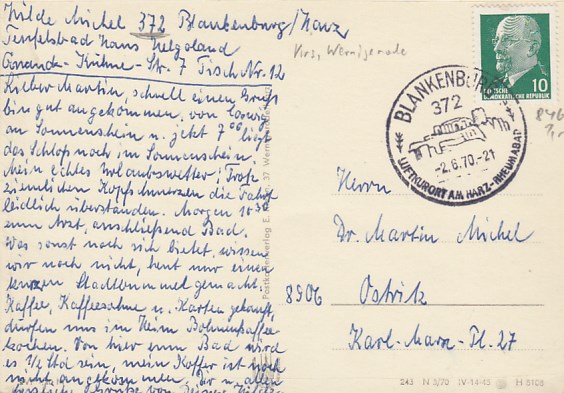 Hilde Michel 372 Blankenburg/Harz
Teufelsbad Haus Helgoland
Krs. Wernigerode
Str. 7 Tisch Nr. 12
Lieber Martin, schnell einen Gruß
bin gut angekommen, von
an Sonnenschein u. jetzt 7 00 liegt
das Schloß noch im Sonnenschein.
Mein echtes Urlaubswetter! Trotz
ziemlichen Kopfschmerzen die Fahrt
leidlich überstanden. Morgen 10 30
zum Arzt, anschließend Bad.
Was sonst noch sich bietet, wissen
wir noch nicht, heut nur einen
kurzen Stadtbummel gemacht.
Kaffee, Kaffeesahne u. Karten gekauft,
dürfen uns im Heim Bohnenkaffee
kochen. Von hier zum Bad wird
es 1/2 Std sein, mein Koffer ist noch
nicht angekommen, Dir u. allen
herzliche Grüße von Deiner Hilde
DEUTSCHE
DEMOKRATISCHE REPUBLIK 10
BLANKENBURG
372
-2.6.70.-21
LUFTKURORT AM HARZ-RHEUMABAD
Herrn
Dr. Martin Michel
8906 Ostritz
Karl-Marx-Pl. 27
243 N 3/70 IV-14-45 H 6108